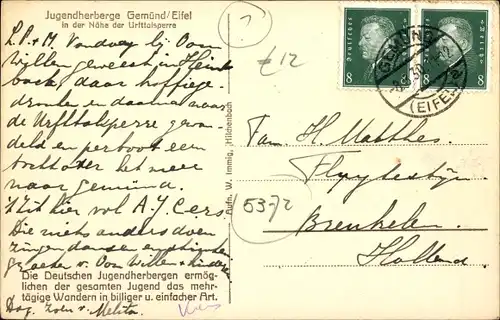 Jugendherberge Gemünd/Eifel
in der Nähe der Urfttalsperre
L.P. + M. Vandaag bij Oom
Willem geweest in
daar koffiege-
dronken en daarna naar
de Urfttalsperre gewan-
deld en per boot een
tocht over het meer
naar Gemünd.
't Zit hier vol A.J.C.ers
Die niets anders doen
zingen dansen
Oom Willem + kinderen
Die Deutschen Jugendherbergen ermög-
lichen der gesamten Jugend das mehr-
tägige Wandern in billiger u. einfacher Art.
Dag. Melita
Aufn. W. Immig, Hilchenbach
£12
5372
Deutsches Reich
8 8
Deutsches Reich
8 8
GEMÜND
(EIFEL)
Fam. H. Matthes.
Breukelen.
Holland